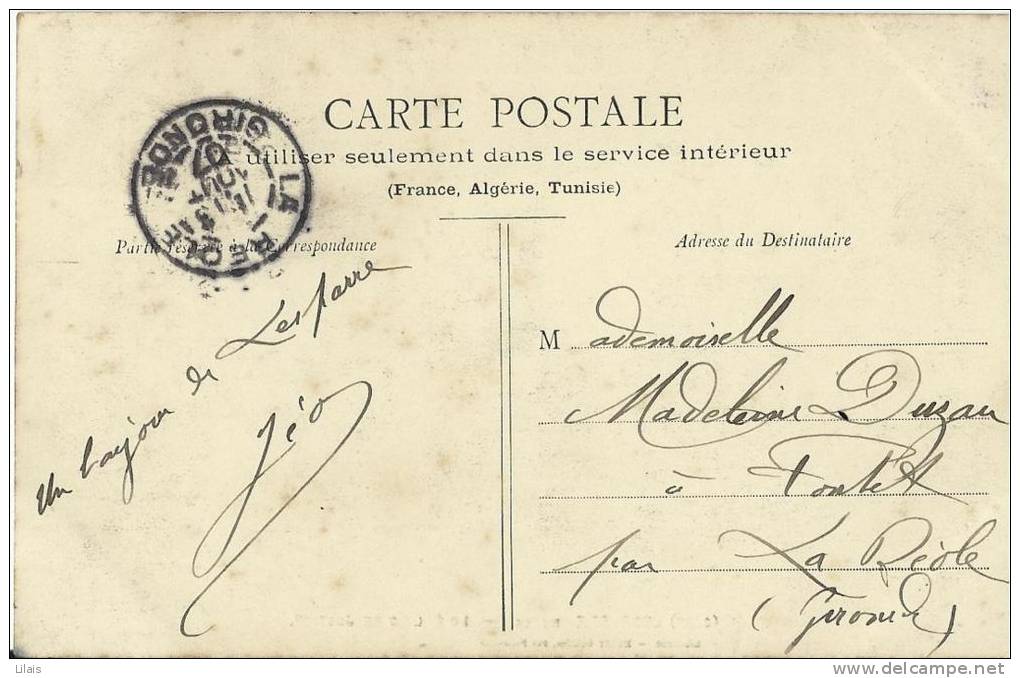 CARTE POSTALE
A utiliser seulement dans le service intérieur
(France, Algérie, Tunisie)
LA REOLE GIRONDE
07
Partie réservée à la Correspondance
Adresse du Destinataire
Un bonjour de Lesparre
Mademoiselle
Madeleine Duzan
à Fontet
par La Réole
(Gironde)
Lilais
www.delcampe.net